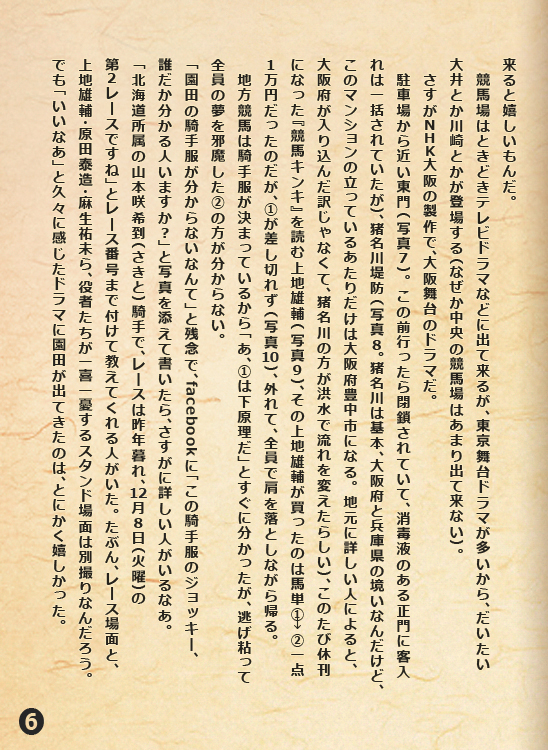 来ると嬉しいもんだ。
　競馬場はときどきテレビドラマなどに出て来るが、東京舞台ドラマが多いから、だいたい
大井とか川崎とかが登場する（なぜか中央の競馬場はあまり出て来ない）。
　さすがＮＨＫ大阪の製作で、大阪舞台のドラマだ。
　駐車場から近い東門（写真７）。この前行ったら閉鎖されていて、消毒液のある正門に客入
れは一括されていたが）、猪名川堤防（写真８。猪名川は基本、大阪府と兵庫県の境いなんだけど、
このマンションの立っているあたりだけは大阪府豊中市になる。地元に詳しい人によると、
大阪府が入り込んだ訳じゃなくて、猪名川の方が洪水で流れを変えたらしい）、このたび休刊
になった『競馬キンキ』を読む上地雄輔（写真９）、その上地雄輔が買ったのは馬単①→②一点
１万円だったのだが、①が差し切れず（写真10）、外れて、全員で肩を落としながら帰る。
　地方競馬は騎手服が決まっているから「あ、①は下原理だ」とすぐに分かったが、逃げ粘って
全員の夢を邪魔した②の方が分からない。
「園田の騎手服が分からないなんて」と残念で、facebookに「この騎手服のジョッキー、
誰だか分かる人いますか？」と写真を添えて書いたら、さすがに詳しい人がいるなあ。
「北海道所属の山本咲希到（さきと）騎手で、レースは昨年暮れ、12月８日（火曜）の
第２レースですね」とレース番号まで付けて教えてくれる人がいた。たぶん、レース場面と、
上地雄輔・原田泰造・麻生祐未ら、役者たちが一喜一憂するスタンド場面は別撮りなんだろう。
でも「いいなあ」と久々に感じたドラマに園田が出てきたのは、とにかく嬉しかった。
6